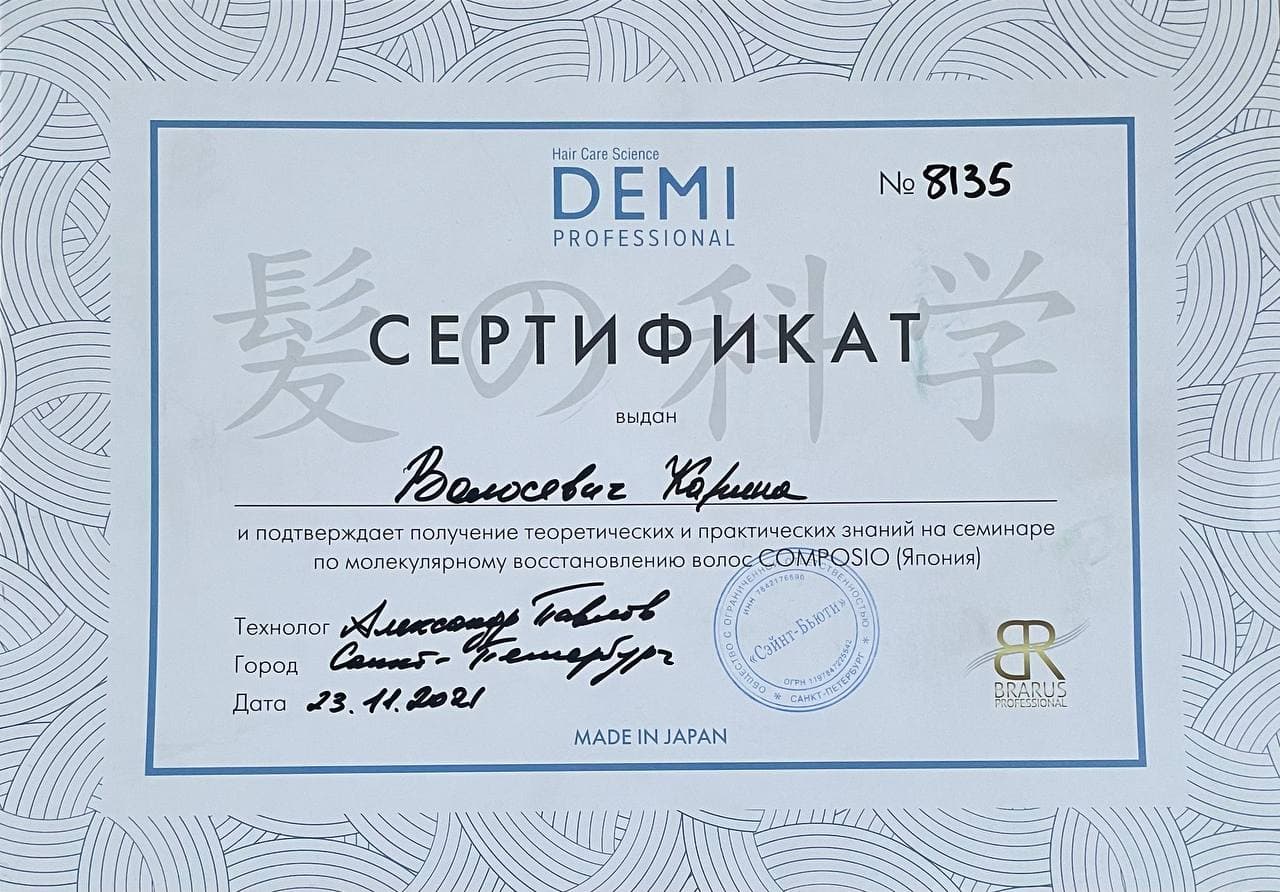 Hair Care Science
DEMI
PROFESSIONAL
№ 8135
髪の科学
СЕРТИФИКАТ
выдан
Волосевич Карина
и подтверждает получение теоретических и практических знаний на семинаре
по молекулярному восстановлению волос COMPOSIO (Япония)
Технолог Александр Павлов
Город Санкт-Петербург
Дата 23.11.2021
ОБЩЕСТВО С ОГРАНИЧЕННОЙ ОТВЕТСТВЕННОСТЬЮ
ИНН 7842176590
«Сэйнт-Бьюти»
ОГРН 1197847225542
* САНКТ-ПЕТЕРБУРГ *
BR
BRARUS
PROFESSIONAL
MADE IN JAPAN